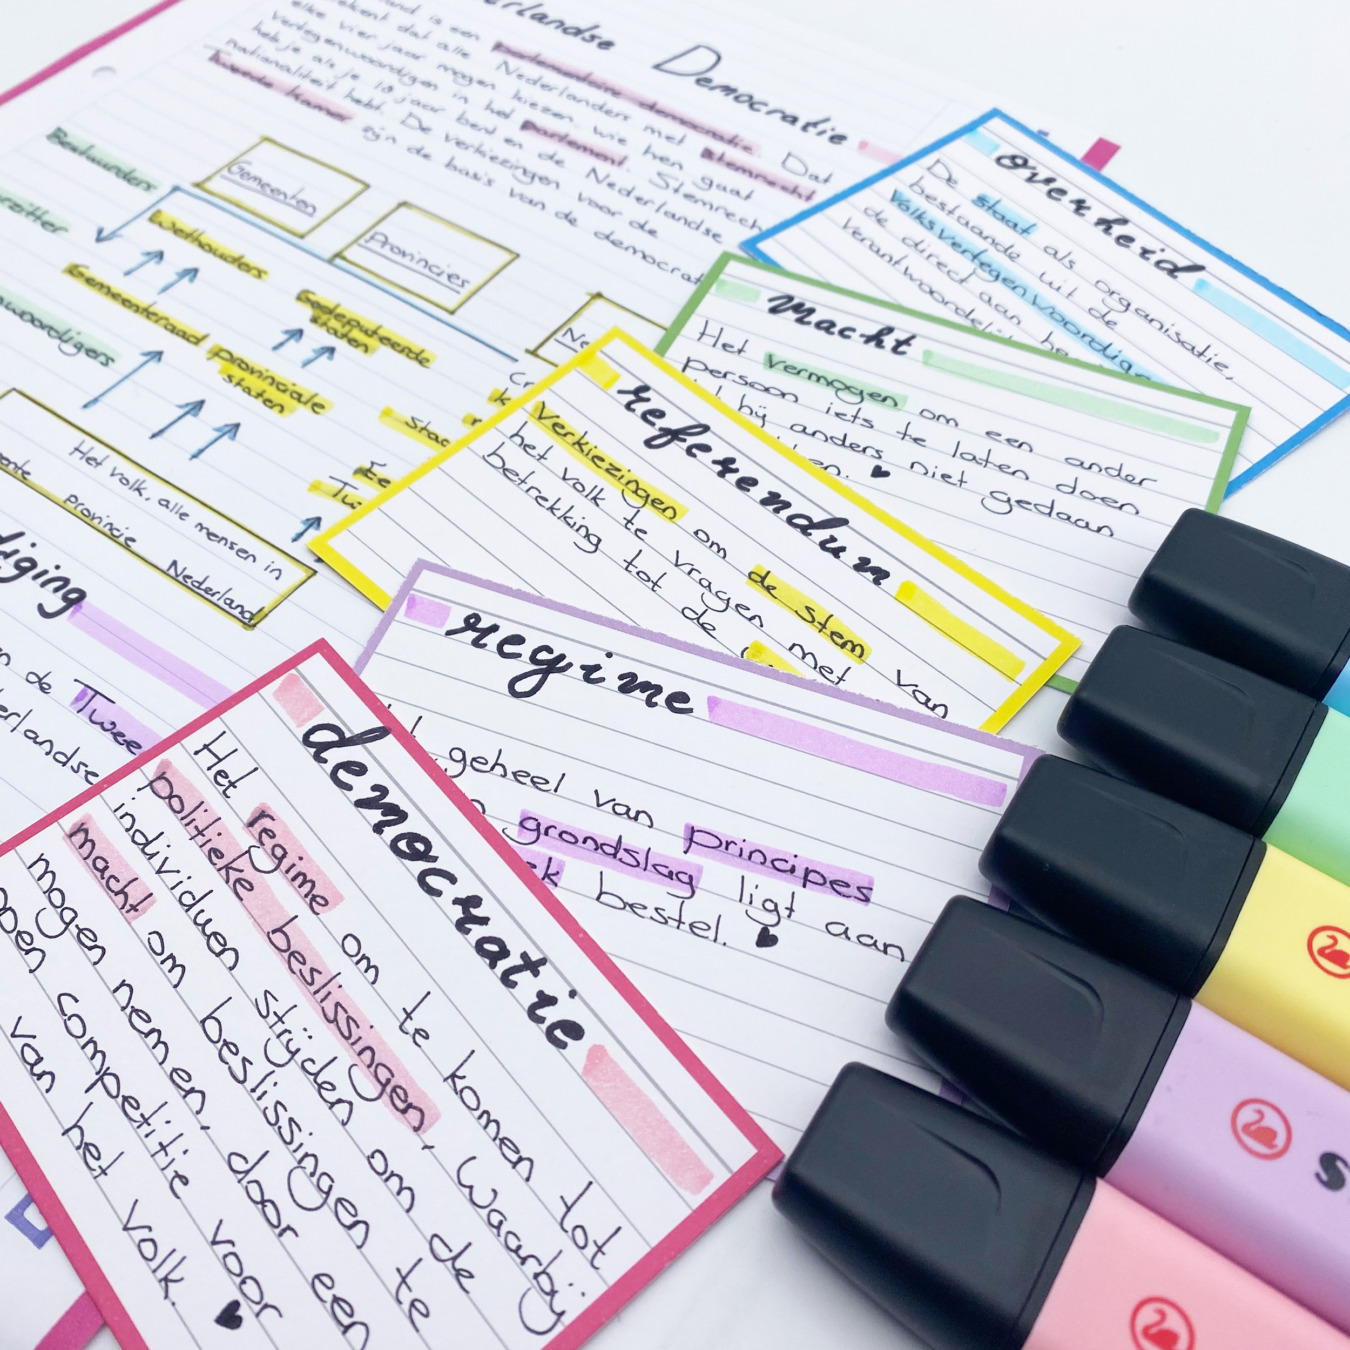 Democratie
parlementaire democratie. Dat
betekent dat alle Nederlanders met stemrecht
elke vier jaar mogen kiezen wie hen gaat
vertegenwoordigen in het parlement. Stemrecht
heb je als je 18 jaar bent en de Nederlandse
nationaliteit hebt. De verkiezingen voor de
Tweede kamer zijn de basis van de
Bestuurders
Gemeenten
Provincies
Wethouders
Gemeenteraad
Gedeputeerde
staten
provinciale
staten
Het volk, alle mensen in
provincie
Nederland
de Twee
overheid
De staat als organisatie,
bestaande uit de
volksvertegenwoordige
de direct aan
verantwoordelij
macht
Het vermogen om een ander
persoon iets te laten doen
bij anders niet gedaan
♥
referendum
Verkiezingen om de stem van
het volk te vragen met
betrekking tot de
regime
geheel van principes
grondslag ligt aan
bestel. ♥
democratie
Het regime om te komen tot
politieke beslissingen, waarbij
individuen strijden om de
macht om beslissingen te
mogen nemen, door een
open competitie voor
van het volk. ♥